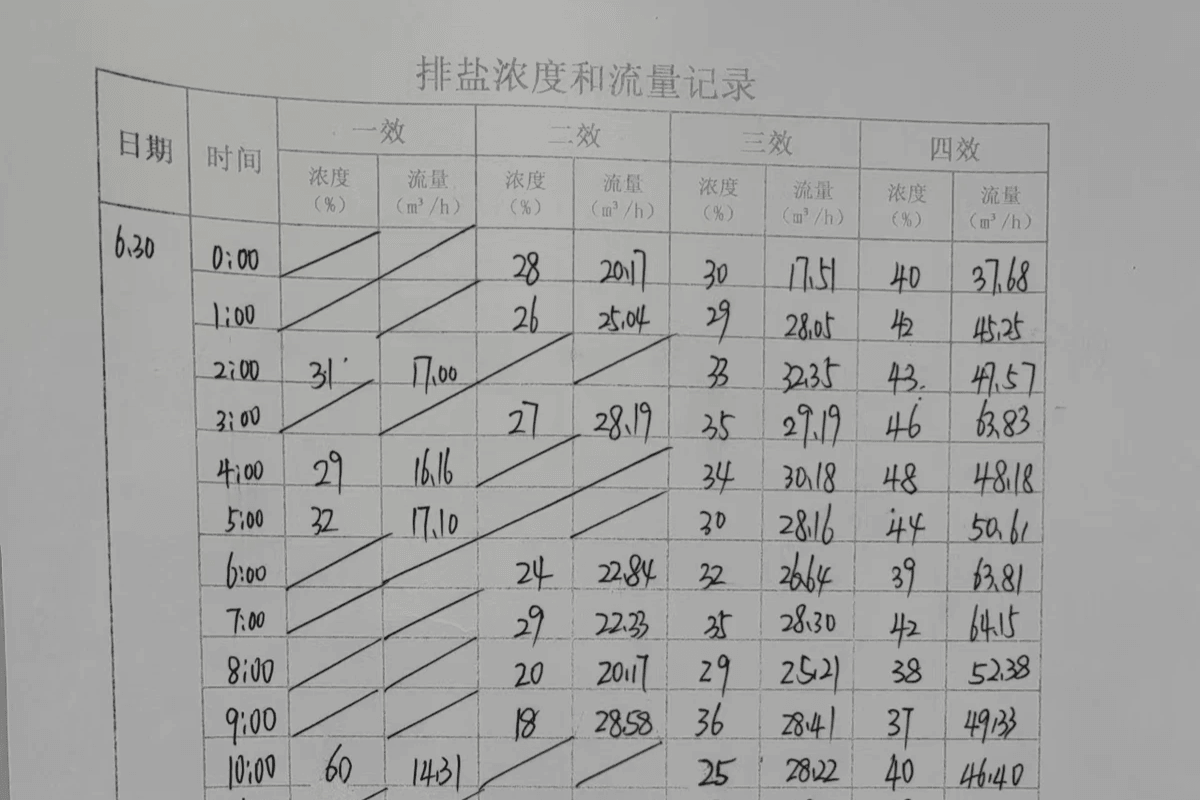 排盐浓度和流量记录
日期 时间 一效 二效 三效 四效
浓度(%) 流量(m³/h) 浓度(%) 流量(m³/h) 浓度(%) 流量(m³/h) 浓度(%) 流量(m³/h)
6.30 0:00 28 20.17 30 17.51 40 37.68
1:00 26 25.04 29 28.05 42 45.25
2:00 31 17.00 33 32.35 43 47.57
3:00 27 28.19 35 29.19 46 63.83
4:00 29 16.16 34 30.18 48 48.18
5:00 32 17.10 30 28.16 44 50.61
6:00 24 22.84 32 26.64 39 63.81
7:00 29 22.33 35 28.30 42 64.15
8:00 20 20.17 29 25.21 38 52.38
9:00 18 28.58 36 28.41 37 49.33
10:00 60 14.31 25 28.22 40 46.40